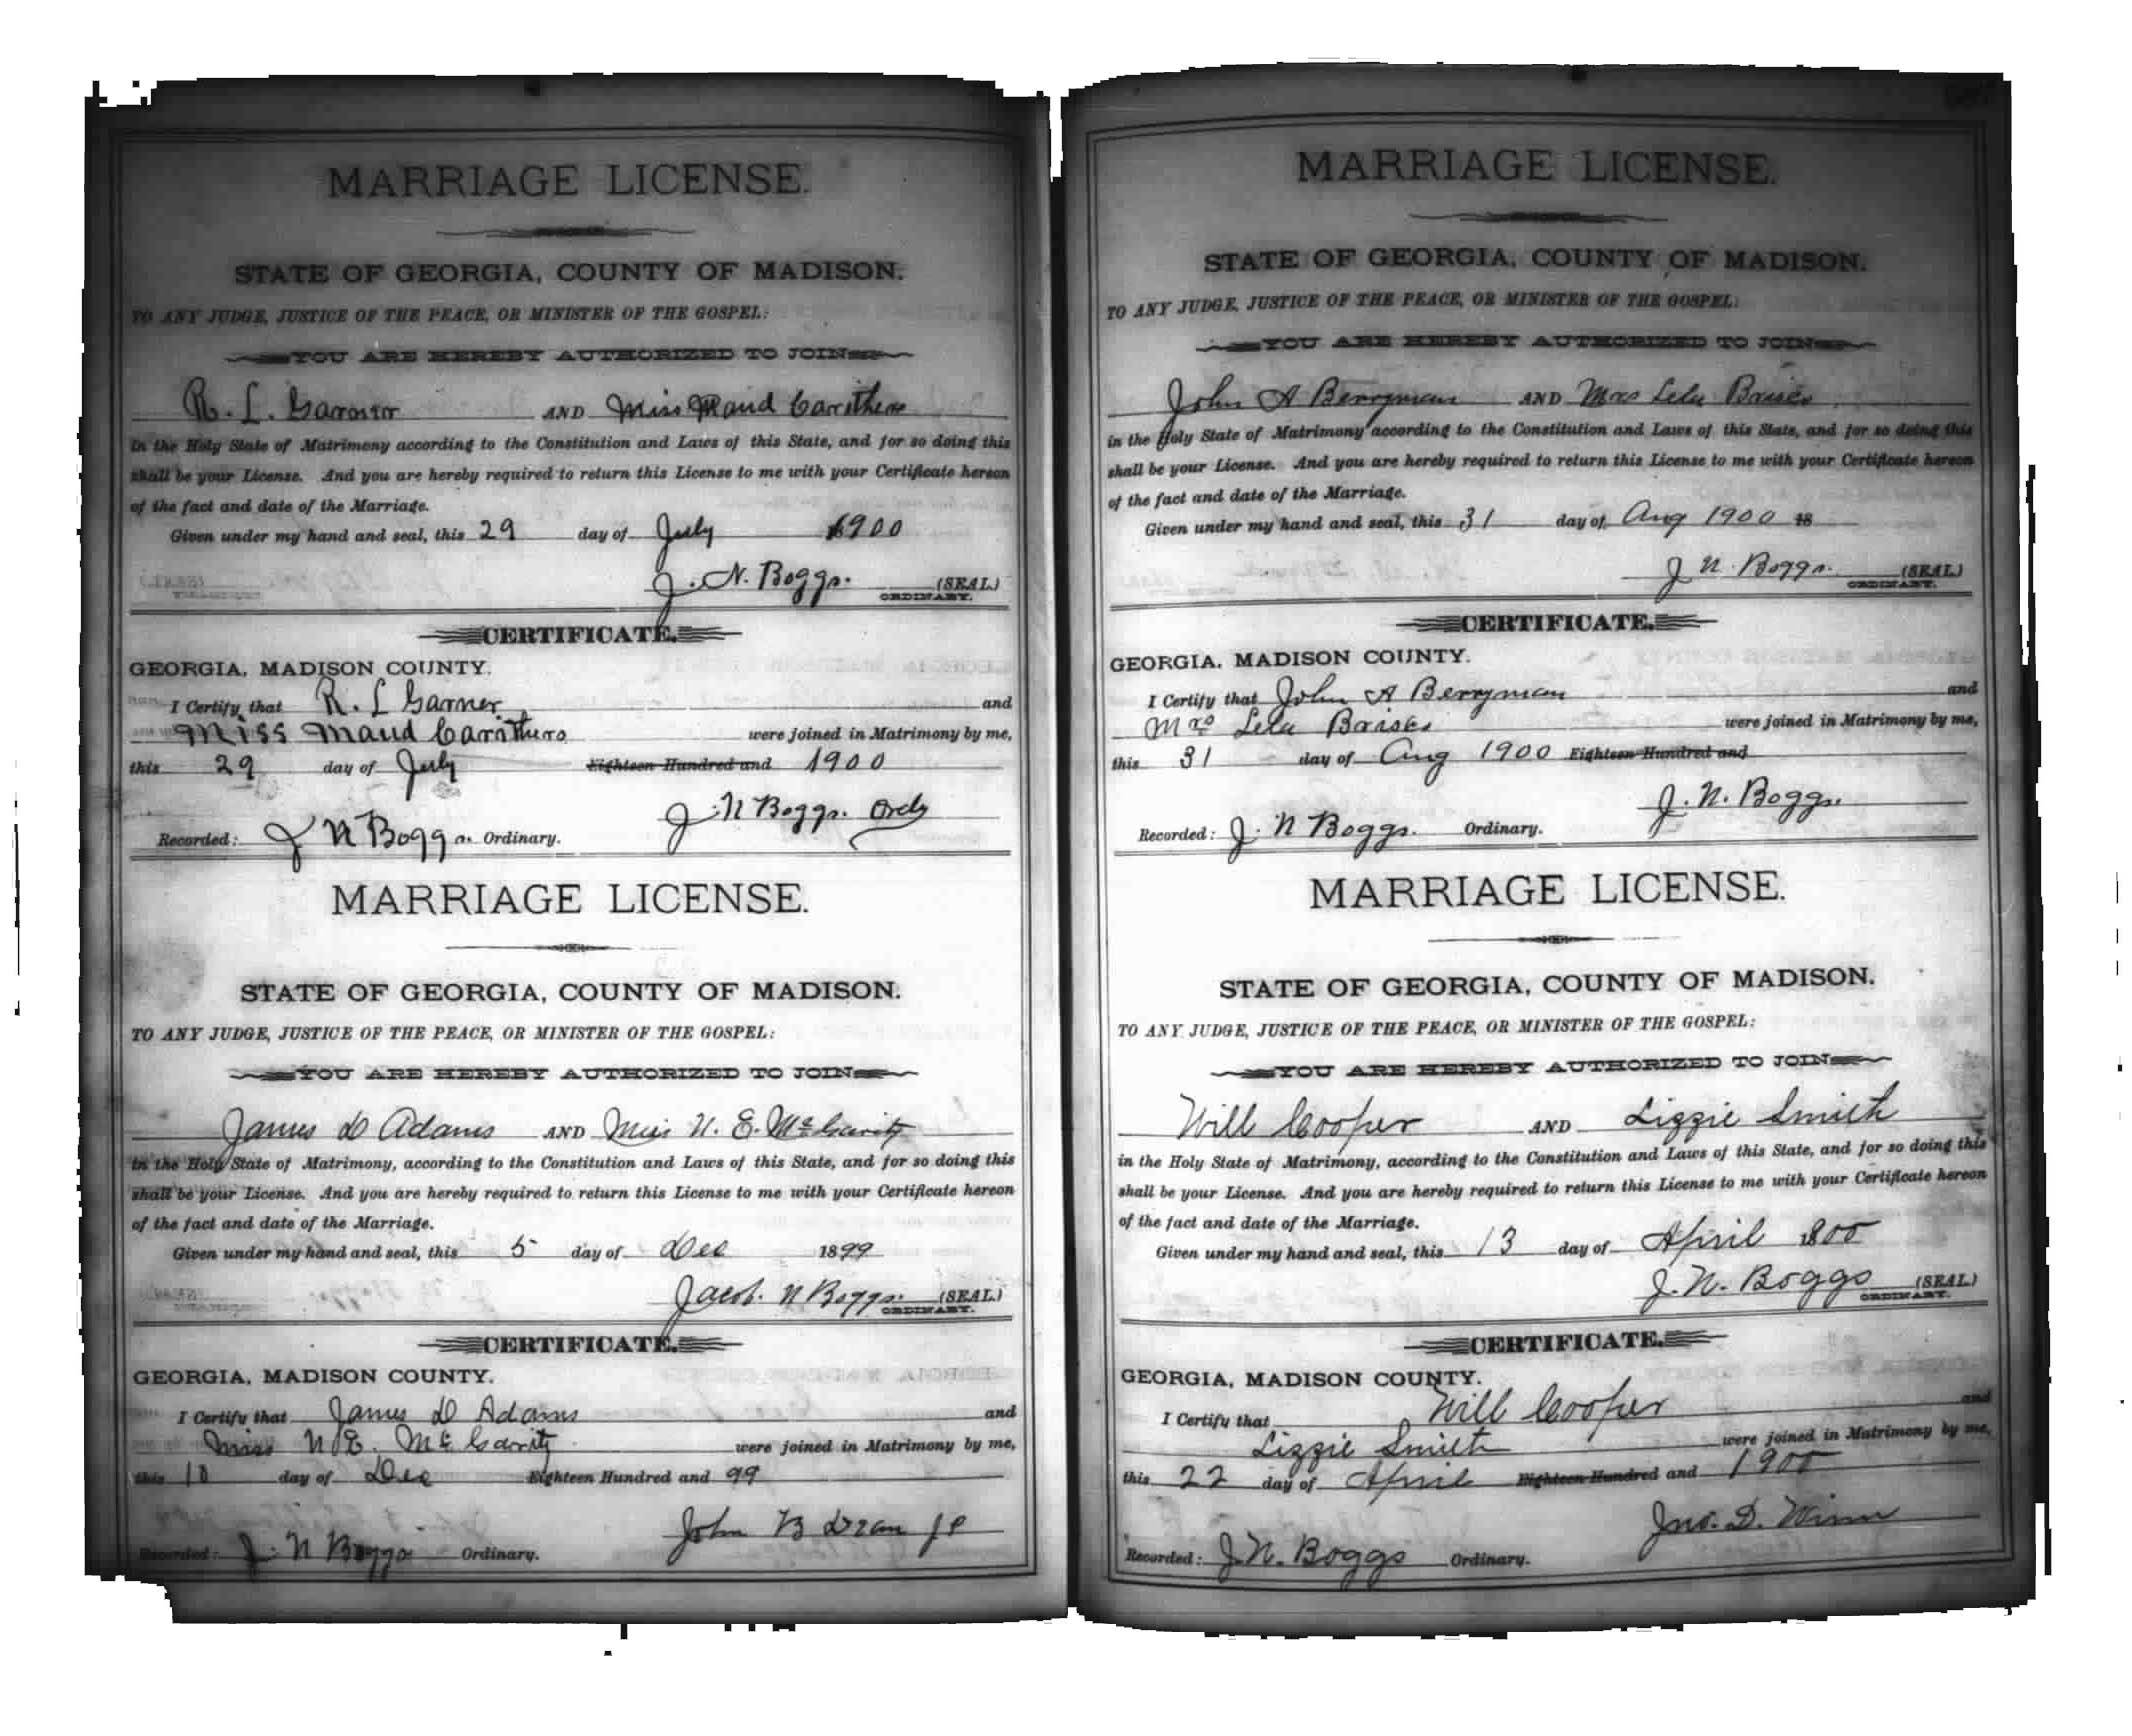 MARRIAGE LICENSE.
STATE OF GEORGIA, COUNTY OF MADISON.
TO ANY JUDGE, JUSTICE OF THE PEACE, OR MINISTER OF THE GOSPEL:
YOU ARE HEREBY AUTHORIZED TO JOIN
R. L. Garner AND Miss Maud Carithers
in the Holy State of Matrimony according to the Constitution and Laws of this State, and for so doing this
shall be your License. And you are hereby required to return this License to me with your Certificate hereon
of the fact and date of the Marriage.
Given under my hand and seal, this 29 day of July 1900
J. N. Boggs. (SEAL)
ORDINARY.
CERTIFICATE.
GEORGIA, MADISON COUNTY.
I Certify that R. L Garner and
Miss Maud Carithers were joined in Matrimony by me,
this 29 day of July Eighteen Hundred and 1900
J. N Boggs. Ordy
Recorded: J N Boggs. Ordinary.
MARRIAGE LICENSE.
STATE OF GEORGIA, COUNTY OF MADISON.
TO ANY JUDGE, JUSTICE OF THE PEACE, OR MINISTER OF THE GOSPEL:
YOU ARE HEREBY AUTHORIZED TO JOIN
James D Adams AND Miss N. E. McCarity
in the Holy State of Matrimony, according to the Constitution and Laws of this State, and for so doing this
shall be your License. And you are hereby required to return this License to me with your Certificate hereon
of the fact and date of the Marriage.
Given under my hand and seal, this 5 day of Dec 1899
Jacob. N Boggs. (SEAL)
ORDINARY.
CERTIFICATE.
GEORGIA, MADISON COUNTY.
I Certify that James D Adams and
Miss N. E. McCarity were joined in Matrimony by me,
this 10 day of Dec Eighteen Hundred and 99
John B JP
Recorded: J. N Boggs Ordinary.
MARRIAGE LICENSE.
STATE OF GEORGIA, COUNTY OF MADISON.
TO ANY JUDGE, JUSTICE OF THE PEACE, OR MINISTER OF THE GOSPEL:
YOU ARE HEREBY AUTHORIZED TO JOIN
John A Berryman AND Mrs Lela
in the Holy State of Matrimony according to the Constitution and Laws of this State, and for so doing this
shall be your License. And you are hereby required to return this License to me with your Certificate hereon
of the fact and date of the Marriage.
Given under my hand and seal, this 31 day of Aug 1900 18
J. N. Boggs. (SEAL)
ORDINARY.
CERTIFICATE.
GEORGIA, MADISON COUNTY.
I Certify that John A Berryman and
Mrs Lela were joined in Matrimony by me,
this 31 day of Aug 1900 Eighteen Hundred and
J. N. Boggs.
Recorded: J. N Boggs. Ordinary.
MARRIAGE LICENSE.
STATE OF GEORGIA, COUNTY OF MADISON.
TO ANY JUDGE, JUSTICE OF THE PEACE, OR MINISTER OF THE GOSPEL:
YOU ARE HEREBY AUTHORIZED TO JOIN
Will Cooper AND Lizzie Smith
in the Holy State of Matrimony, according to the Constitution and Laws of this State, and for so doing this
shall be your License. And you are hereby required to return this License to me with your Certificate hereon
of the fact and date of the Marriage.
Given under my hand and seal, this 13 day of April
J. N. Boggs (SEAL)
ORDINARY.
CERTIFICATE.
GEORGIA, MADISON COUNTY.
I Certify that Will Cooper and
Lizzie Smith were joined in Matrimony by me,
this 22 day of April Eighteen Hundred and 1900
Jno. D. Winn
Recorded: J. N. Boggs Ordinary.